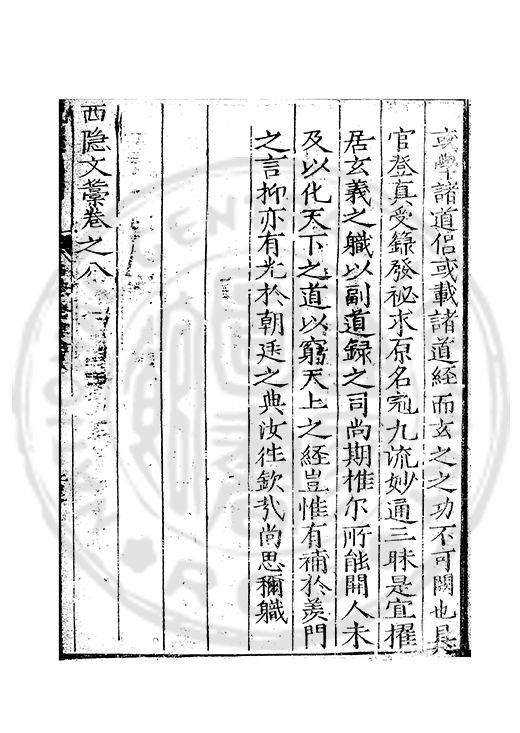 或學諸道侣或載諸道經而玄之之功不可闕也具
官登真受錄發祕求原名冠九流妙通三昧是宜擢
居玄義之職以副道録之司尚期推尔所能開人未
及以化天下之道以窮天上之經豈惟有補於羡門
之言抑亦有光於朝廷之典汝徃欽㢤尚思稱職
西隐文藁卷之八